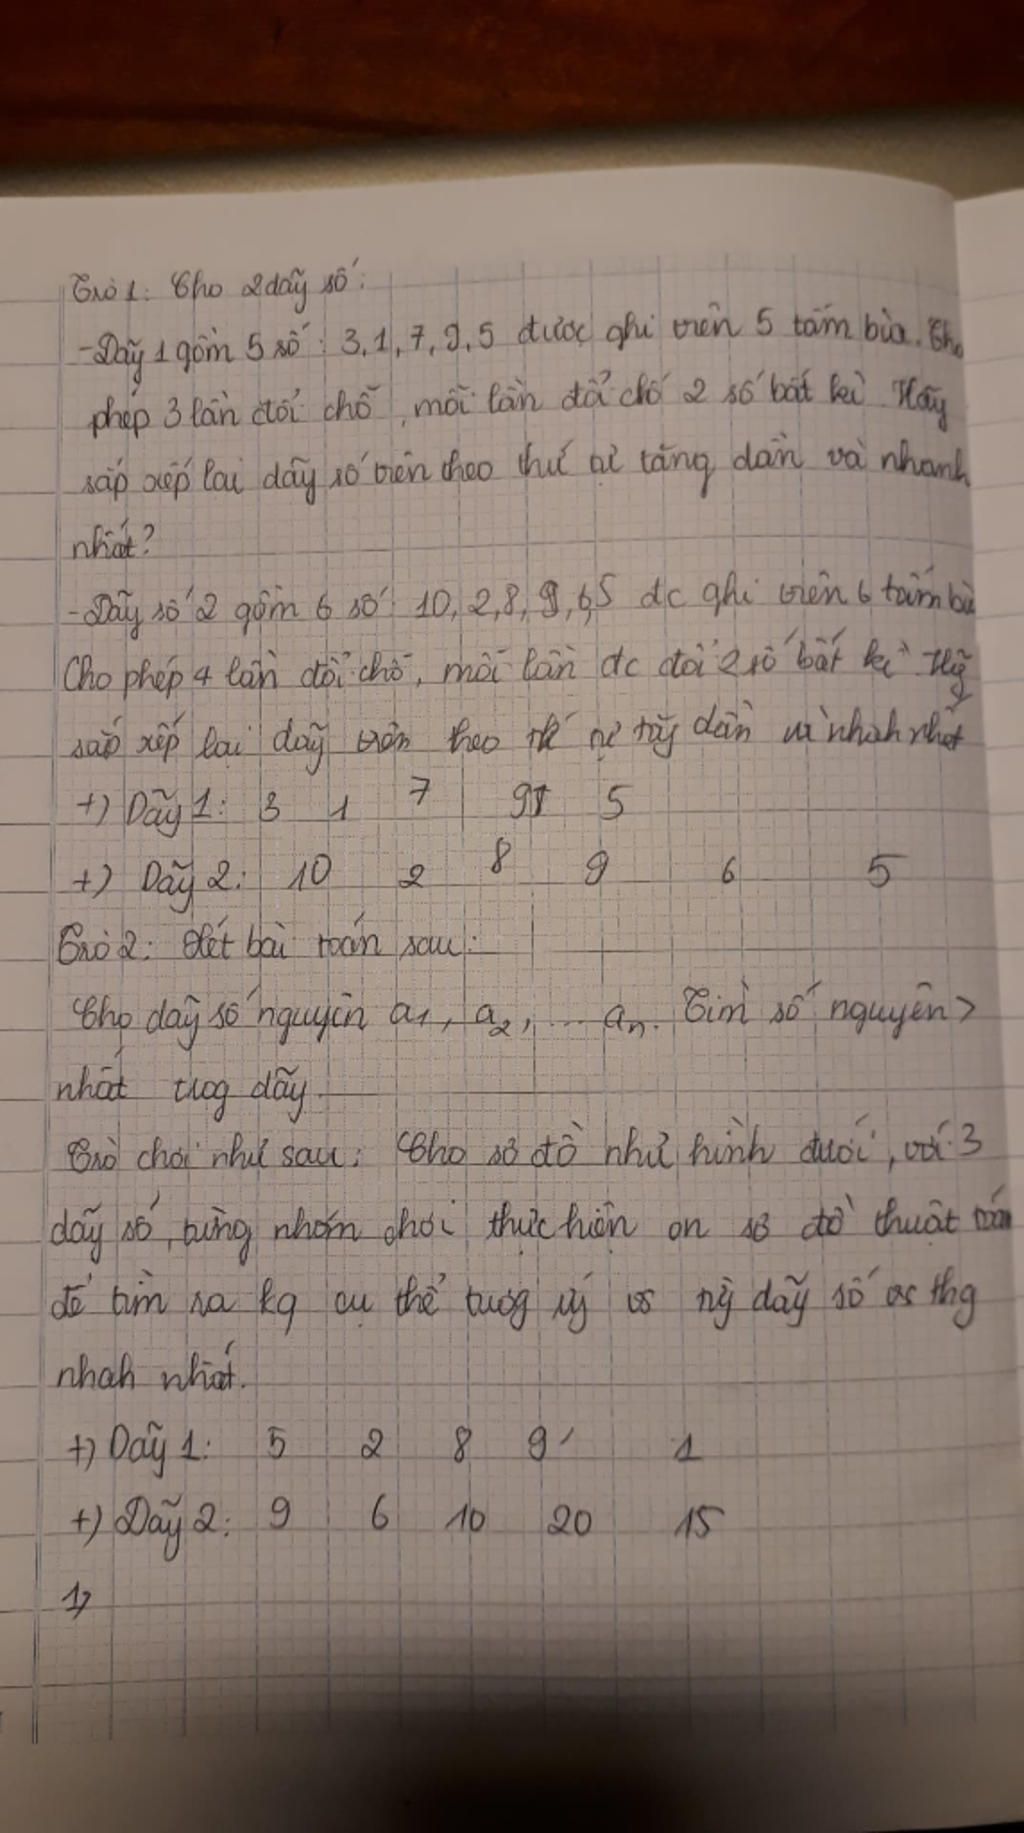 Trò 1: Cho 2 dãy số:
- Dãy 1 gồm 5 số: 3, 1, 7, 9, 5 được ghi trên 5 tấm bìa. Cho
phép 3 lần đổi chỗ, mỗi lần đổi chỗ 2 số bất kì. Hãy
sắp xếp lại dãy số trên theo thứ tự tăng dần và nhanh
nhất?
- Dãy số 2 gồm 6 số: 10, 2, 8, 9, 6, 5 đc ghi trên 6 tấm bìa
Cho phép 4 lần đổi chỗ, mỗi lần đc đổi 2 số bất kì. Hãy
sắp xếp lại dãy trên theo dần và nhah nhất
+) Dãy 1: 3 1 7 9 5
+) Dãy 2: 10 2 8 9 6 5
Trò 2: Xét bài toán sau:
Cho dãy số nguyên a1, a2, ... an. Tìm số nguyên >
nhất trog dãy.
Trò chơi như sau: Cho sơ đồ như hình dưới, với 3
dãy số, từng nhóm chơi thực hiện on sơ đồ thuật toán
để tìm ra kq cụ thể tươg ứg vs từg dãy số vs thg
nhah nhất.
+) Dãy 1: 5 2 8 9 1
+) Dãy 2: 9 6 10 20 15
1)